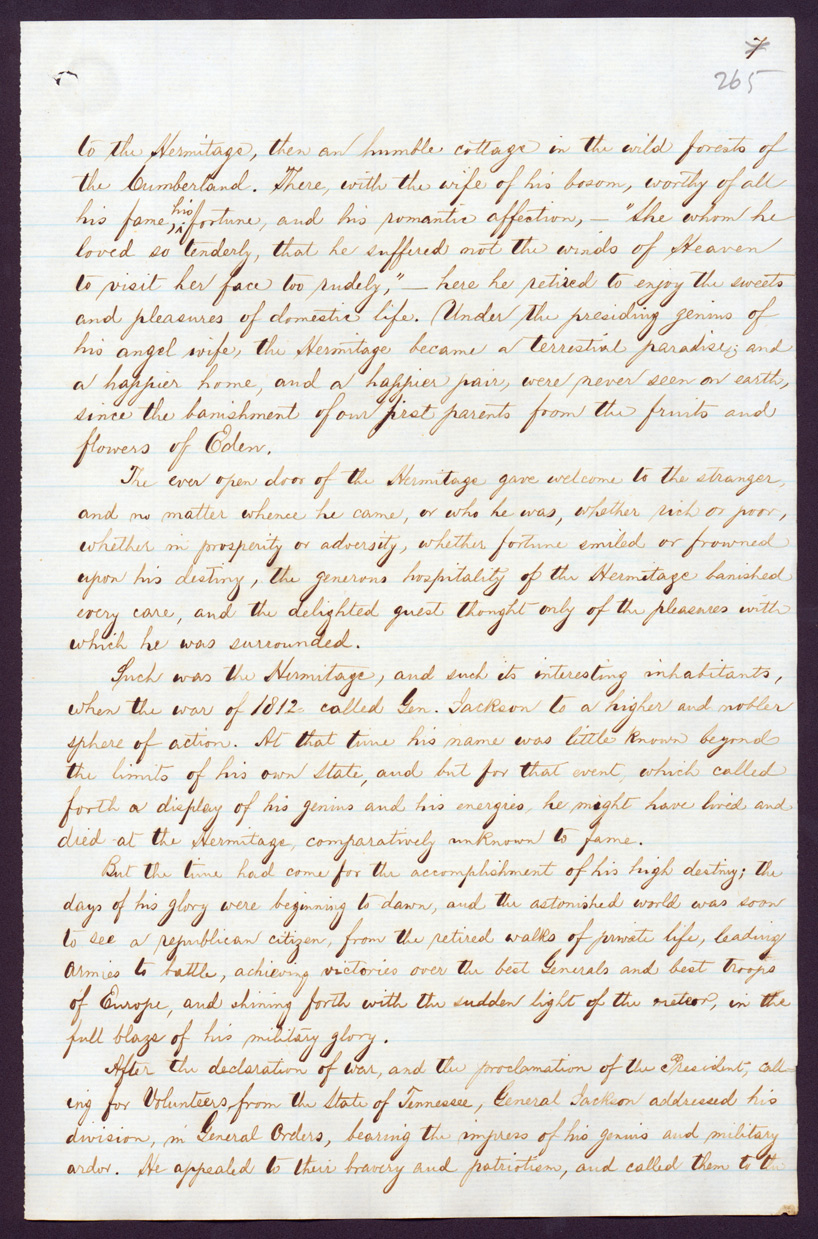 7
265
to the Hermitage, then an humble cottage in the wild forests of
the Cumberland. There, with the wife of his bosom, worthy of all
his fame, his fortune, and his romantic affection, — "She whom he
loved so tenderly, that he suffered not the winds of Heaven
to visit her face too rudely," — here he retired to enjoy the sweets
and pleasures of domestic life. Under the presiding genius of
his angel wife, the Hermitage became a terrestial paradise; and
a happier home, and a happier pair, were never seen on earth,
since the banishment of our first parents from the fruits and
flowers of Eden.
The ever open door of the Hermitage gave welcome to the stranger,
and no matter whence he came, or who he was, whether rich or poor,
whether in prosperity or adversity, whether fortune smiled or frowned
upon his destiny, the generous hospitality of the Hermitage banished
every care, and the delighted guest thought only of the pleasures with
which he was surrounded.
Such was the Hermitage, and such its interesting inhabitants,
when the war of 1812 called Gen. Jackson to a higher and nobler
sphere of action. At that time his name was little known beyond
the limits of his own State, and but for that event, which called
forth a display of his genius and his energies, he might have lived and
died at the Hermitage, comparatively unknown to fame.
But the time had come for the accomplishment of his high destiny; the
days of his glory were beginning to dawn, and the astonished world was soon
to see a republican citizen, from the retired walks of private life, leading
armies to battle, achieving victories over the best Generals and best troops
of Europe, and shining forth with the sudden light of the meteor, in the
full blaze of his military glory.
After the declaration of war, and the proclamation of the President, call-
ing for Volunteers, from the State of Tennessee, General Jackson addressed his
division, in General Orders, bearing the impress of his genius and military
ardor. He appealed to their bravery and patriotism, and called them to the